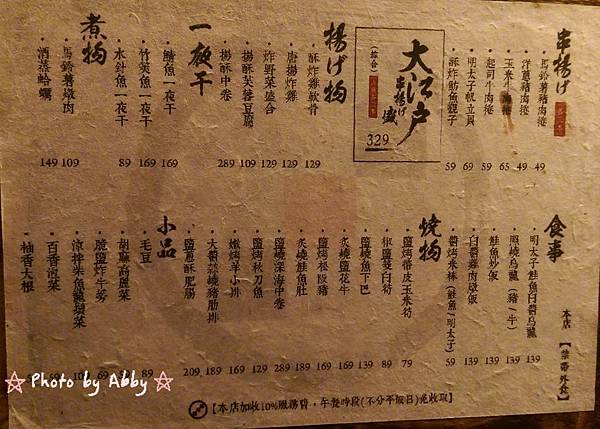 串揚げ
・馬鈴薯豬肉捲 49
・洋蔥豬肉捲 49
・玉米牛肉捲 65
・起司牛肉捲 59
・明太子帆立貝 69
・酥炸魴魚親子 59
大江戶
串揚げ
盛
(綜合)
329
揚げ物
・酥炸雞軟骨 129
・唐揚炸雞 129
・炸野菜盛合 129
・揚酥芙蓉豆腐 109
・揚酥中卷 289
一夜干
・鯖魚一夜干 169
・竹筴魚一夜干 169
・水針魚一夜干 89
煮物
・馬鈴薯燉肉 109
・酒蒸蛤蠣 149
食事
・明太子鮭魚白醬烏龍 139
・照燒烏龍(豬/牛) 139
・鮭魚炒飯 139
・白醬雞肉燉飯 139
・醬烤米棒(散魚/明太子) 59
燒物
・鹽烤帶皮玉米筍 79
・椒鹽茭白筍 89
・鹽燒魚下巴 139
・炙燒鹽花牛 169
・鹽烤松阪豬 169
・炙燒鮭魚肚 189
・鹽燒深海中卷 289
・鹽烤秋刀魚 129
・嫩烤羊小排 169
・大醬蒜燒豬肋排 189
・鹽蔥酥肥腸 209
小品
・毛豆 89
・胡麻高麗菜
・脆鹽炸牛蒡
・涼拌柴魚龍鬚菜
・百香泡菜
・柚香大根
本店【禁帶外食】
【本店加收10%服務費，午餐時段(不分平假日)免收取】
☆ Photo by Abby ☆